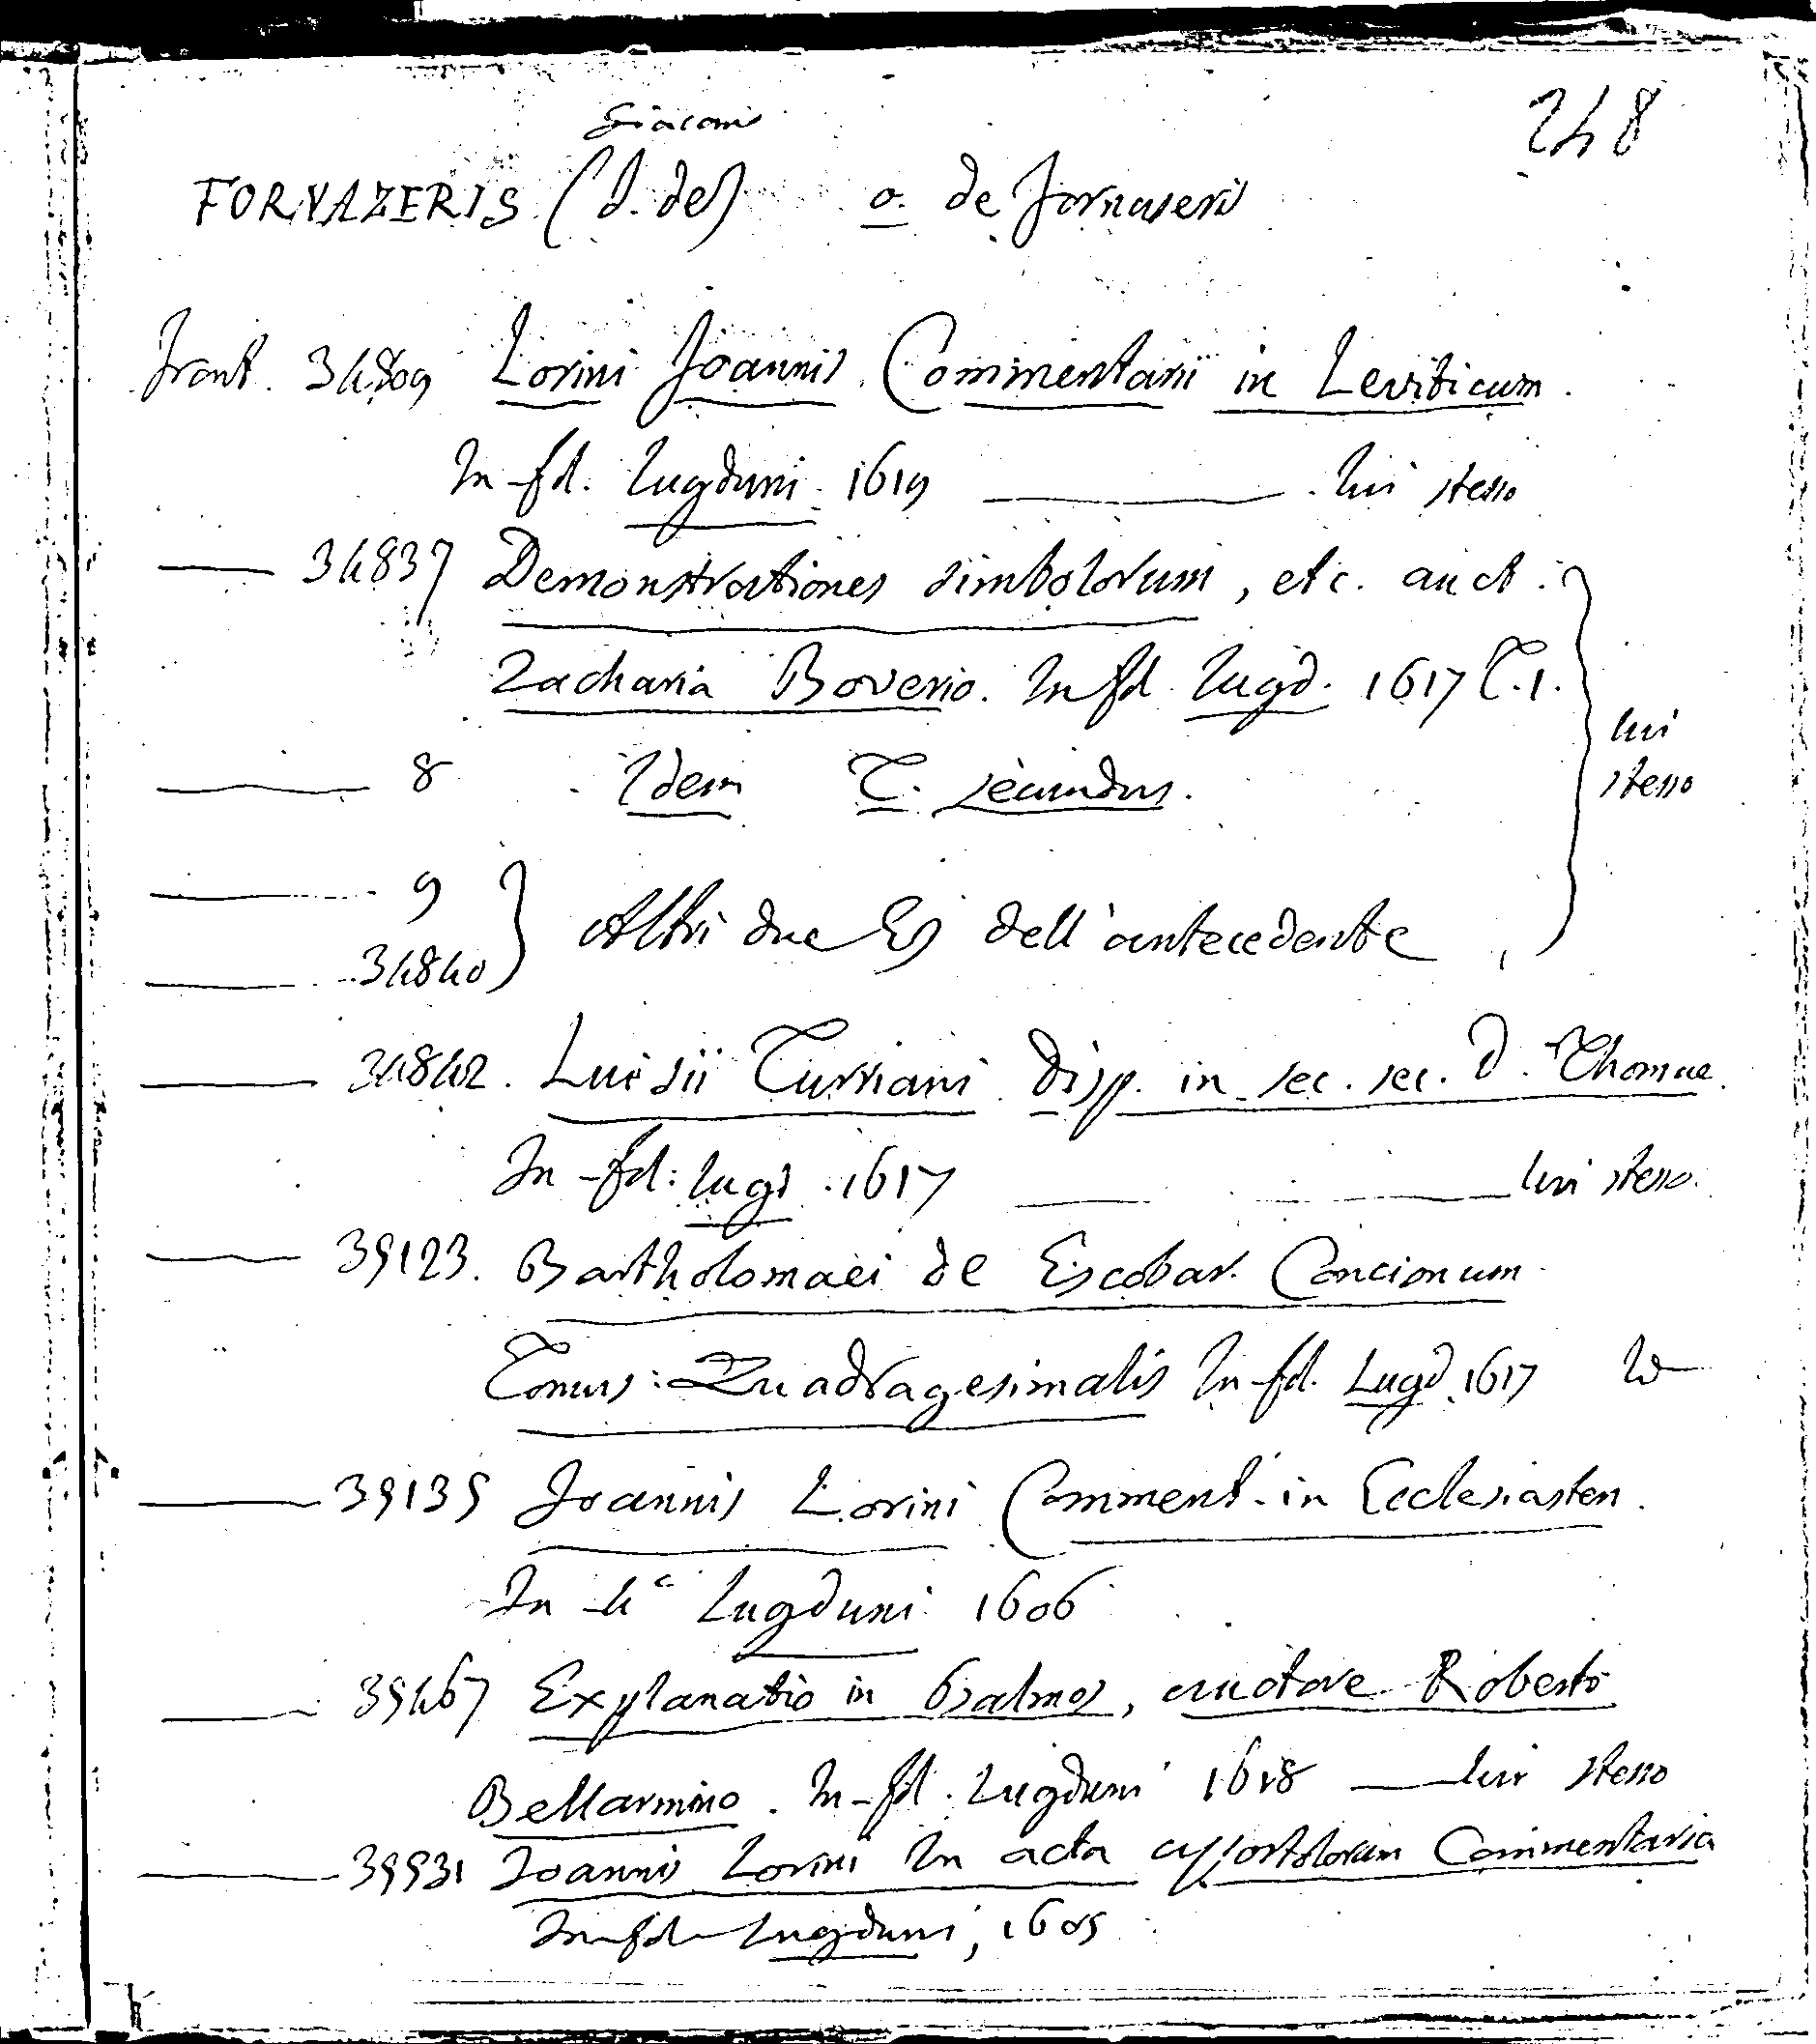 248
Giacomo
FORNAZERIS (J. de) o. de Fornaseris
Front. 34809 Lorini Joannis Commentarii in Leviticum.
In-fol. Lugduni 1619 lui stesso
34837 Demonstrationes simbolorum, etc. auct.
Zacharia Boverio. In fol. Lugd. 1617 T. 1.
lui
stesso
8 Idem T. secundus.
9
34840
Altri due Es dell'antecedente
34842. Luisii Turriani Disp. in sec. sec. D. Thomae
In-fol: Lugd. 1617 lui stesso.
39123. Bartholomaei de Escobar. Concionum
Tomus: Quadragesimalis In-fol. Lugd. 1617
39139 Joannis Lorini Comment. in Ecclesiasten.
In-4° Lugduni 1606
39467 Explanatio in Psalmos, auctore Roberto
Bellarmino. In-fol. Lugduni 1618 lui stesso
39931 Joannis Lorini In acta apostolorum Commentaria
In-fol Lugduni, 1605